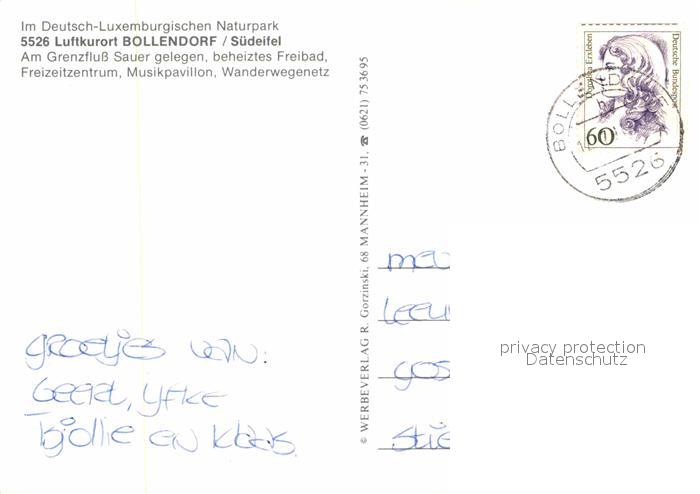 Im Deutsch-Luxemburgischen Naturpark
5526 Luftkurort BOLLENDORF / Südeifel
Am Grenzfluß Sauer gelegen, beheiztes Freibad,
Freizeitzentrum, Musikpavillon, Wanderwegenetz
© WERBEVERLAG R. Gorzinski, 68 MANNHEIM - 31, ☎ (0621) 75 36 95
Dorothea Erxleben
Deutsche Bundespost
60
5526
groetjes van:
Geert, Yfke
Tsjollie en Klaas.
privacy protection
Datenschutz